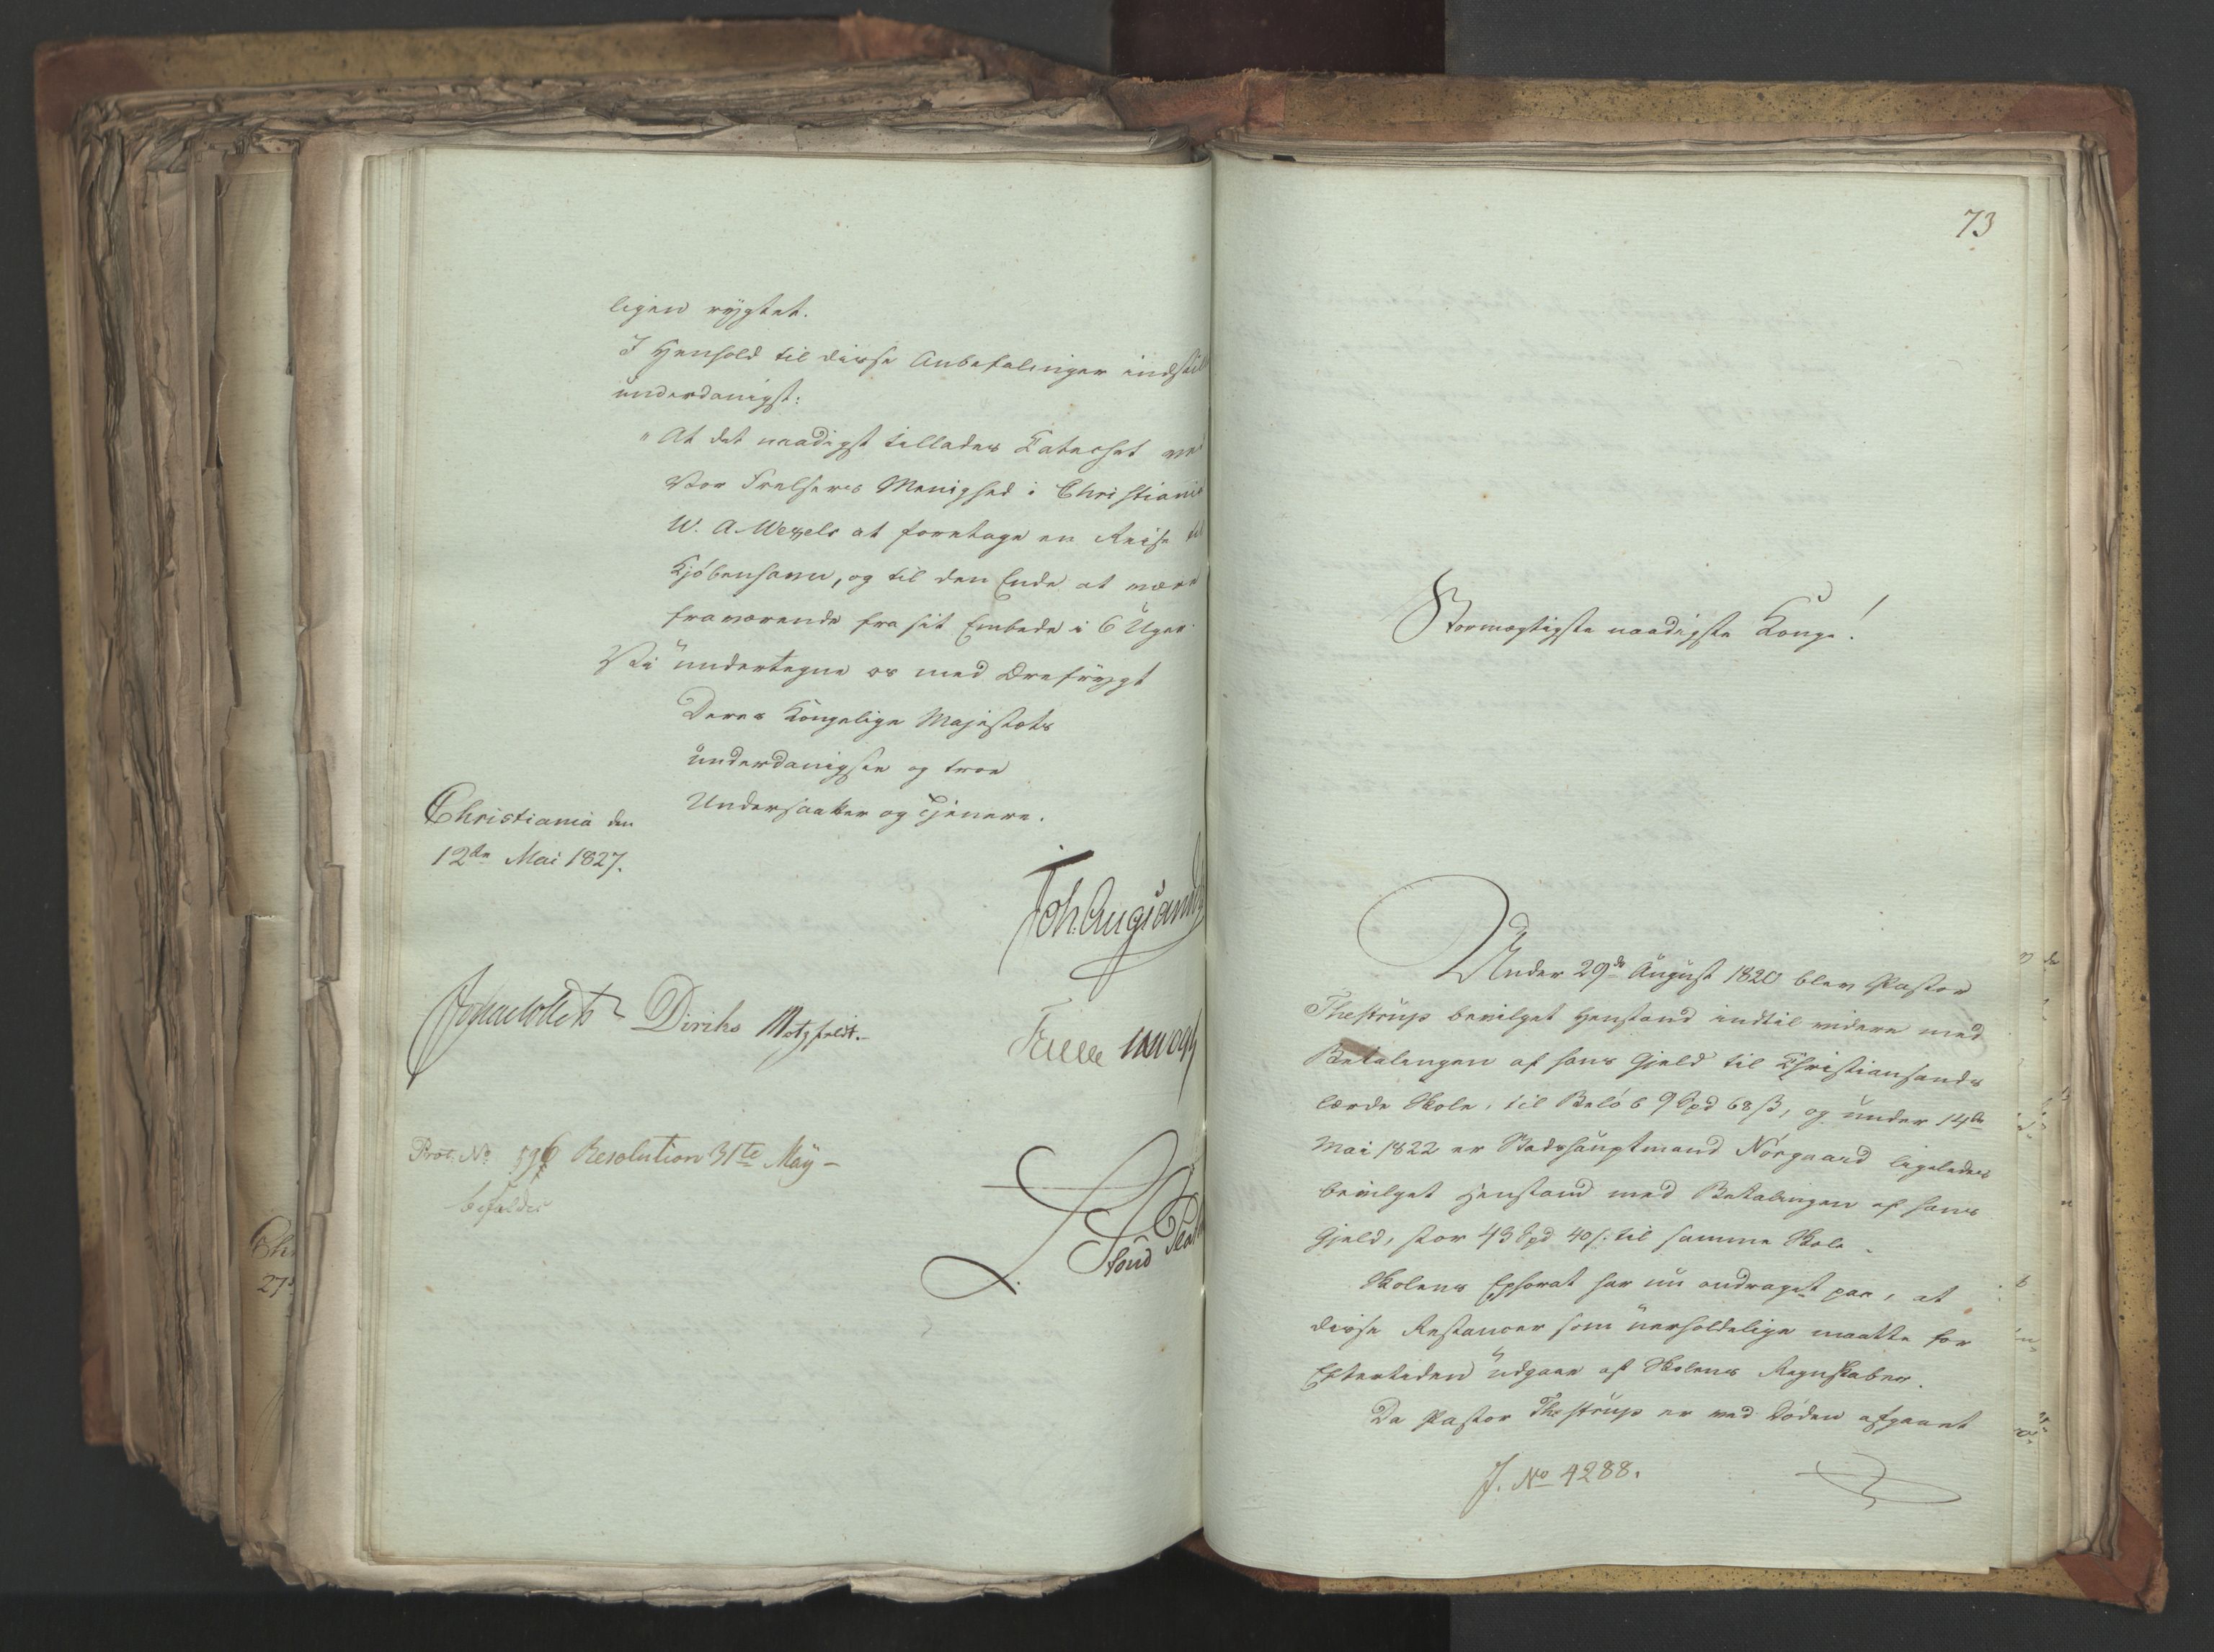 ligen rygtet.
I Henhold til disse Anbefalinger indstil
underdanigst:
"At det naadigst tillades Catechet ved
Vor Frelsers Menighed i Christiania
W. A. Wexels at foretage en Reise til
Kjöbenhavn, og til den Ende at være
fraværende fra sit Embede i 6 Uger.
Vi undertegne os med Ærefrygt
Deres Kongelige Majestæts
underdanigste og troe
Undersaatter og Tjenere.
Christiania den
12te Mai 1827.
Joh. Aug: Sand
Jonas Collett Diriks Motzfeldt.
Treschow
Prot. No 596 Resolution 31te May -
bifaldes
73
Stormægtigste naadigste Konge!
Under 29de August 1820 blev Pastor
Thestrup bevilget Henstand indtil videre med
Betalingen af hans Gjeld til Christiansands
lærde Skole, til Belöb 9 Spd 68 ß, og under 14de
Mai 1822 er Stadshauptmand Nörgaard ligeledes
bevilget Henstand med Betalingen af hans
Gjeld, stor 43 Spd 40 ß: til samme Skole.
Skolens Ephorat har nu andraget paa, at
disse Restancer som uerholdelige maatte for
Eftertiden udgaae af Skolens Regnskaber.
Da Pastor Thestrup er ved Döden afgaaet
J. No 4288.